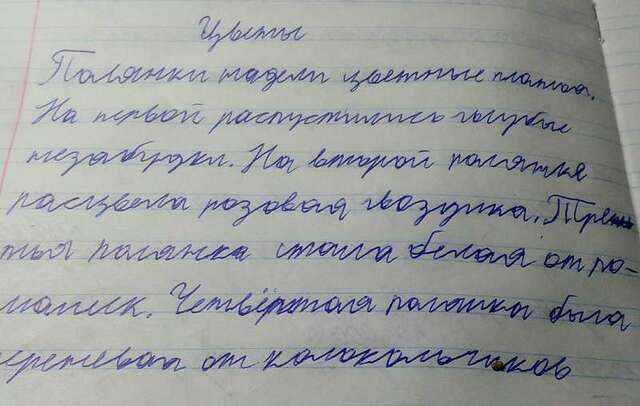 Цветы
Полянки надели цветные платья.
На первой распустились голубые
незабудки. На второй полянке
расцвела розовая гвоздика. Тре-
тья полянка стала белая от ро-
машек. Четвёртая полянка была
от колокольчиков